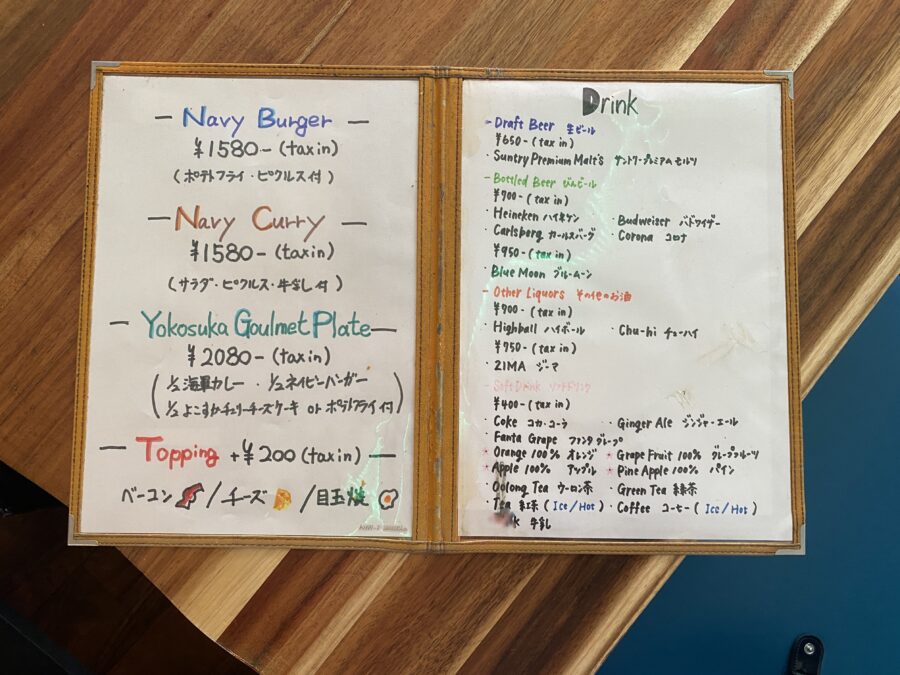 — Navy Burger —
¥1580-(tax in)
(ポテトフライ・ピクルス付)
— Navy Curry —
¥1580-(tax in)
(サラダ・ピクルス・牛乳付)
— Yokosuka Goulmet Plate —
¥2080-(tax in)
(½海軍カレー・½ネイビーバーガー
½よこすかチェリーチーズケーキ or ポテトフライ付)
— Topping +¥200(tax in) —
ベーコン/チーズ/目玉焼
Drink
- Draft Beer 生ビール
¥650-(tax in)
・Suntry Premium Malt's サントリープレミアムモルツ
- Bottled Beer びんビール
¥700-(tax in)
・Heineken ハイネケン ・Budweiser バドワイザー
・Carlsberg カールスバーグ ・Corona コロナ
¥950-(tax in)
・Blue Moon ブルームーン
- Other Liquors その他のお酒
¥700-(tax in)
・Highball ハイボール ・Chu-hi チューハイ
¥750-(tax in)
・ZIMA ジーマ
- Soft Drink ソフトドリンク
¥400-(tax in)
・Coke コカ・コーラ ・Ginger Ale ジンジャーエール
・Fanta Grape ファンタグレープ
*Orange 100% オレンジ *Grape Fruit 100% グレープフルーツ
*Apple 100% アップル *Pine Apple 100% パイン
・Oolong Tea ウーロン茶 ・Green Tea 緑茶
・Tea 紅茶(Ice/Hot) ・Coffee コーヒー(Ice/Hot)
牛乳